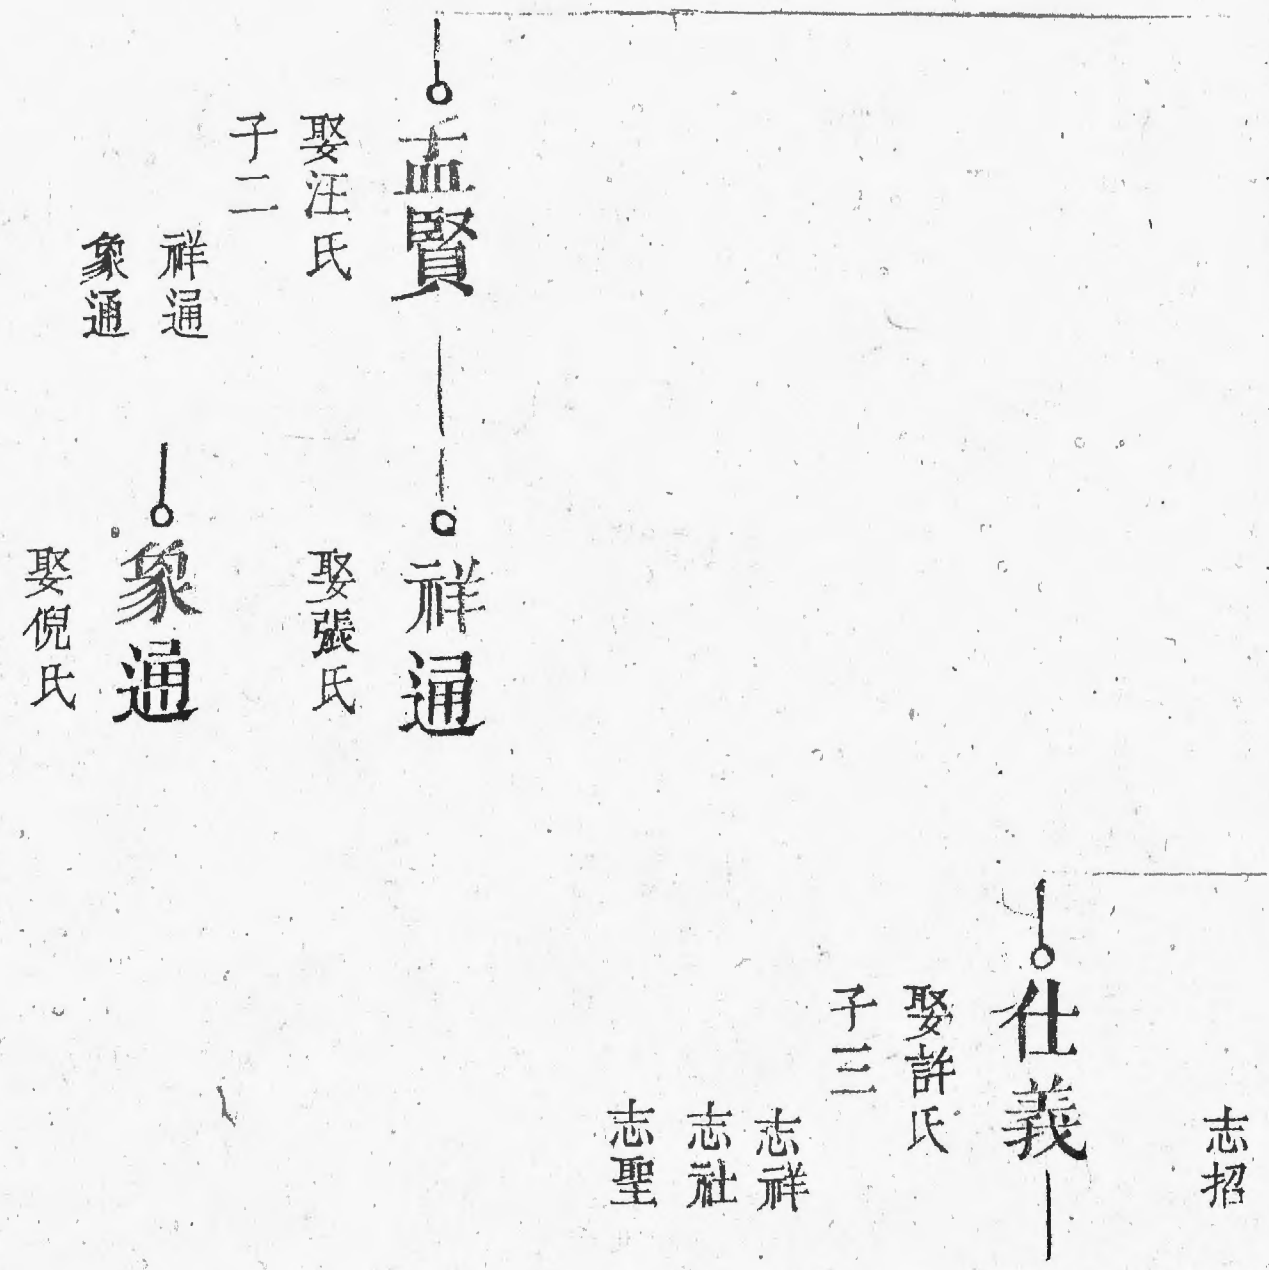 志招
仕義
娶許氏
子三
志祥
志社
志聖
孟賢
娶汪氏
子二
祥通
象通
祥通
娶張氏
象通
娶倪氏